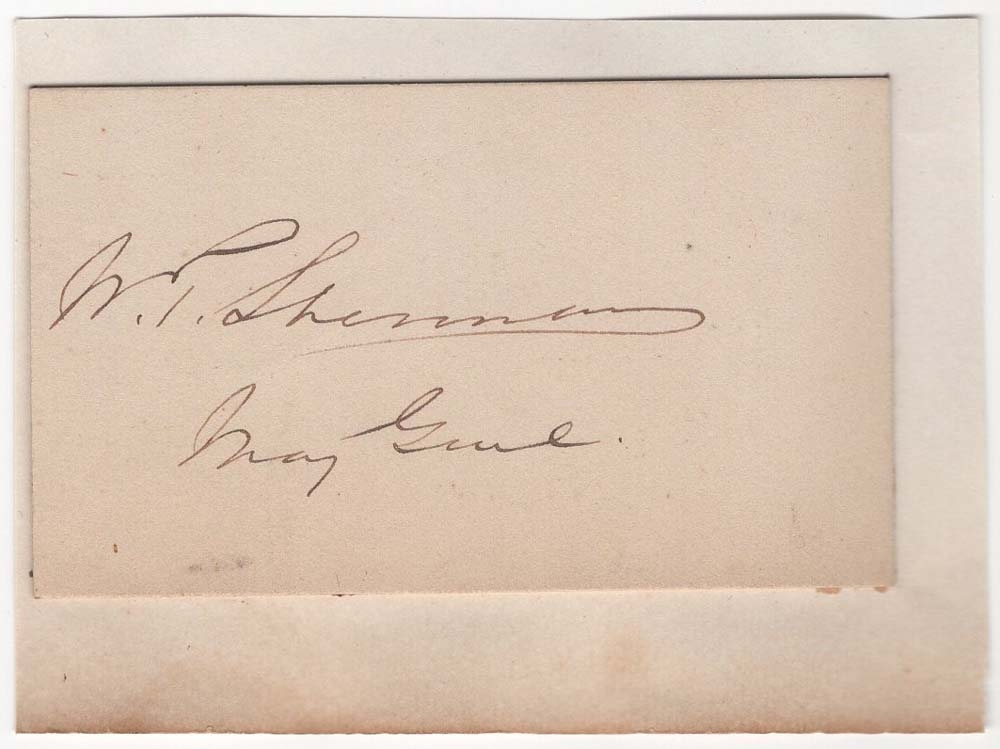 W. T. Sherman
Maj Genl.